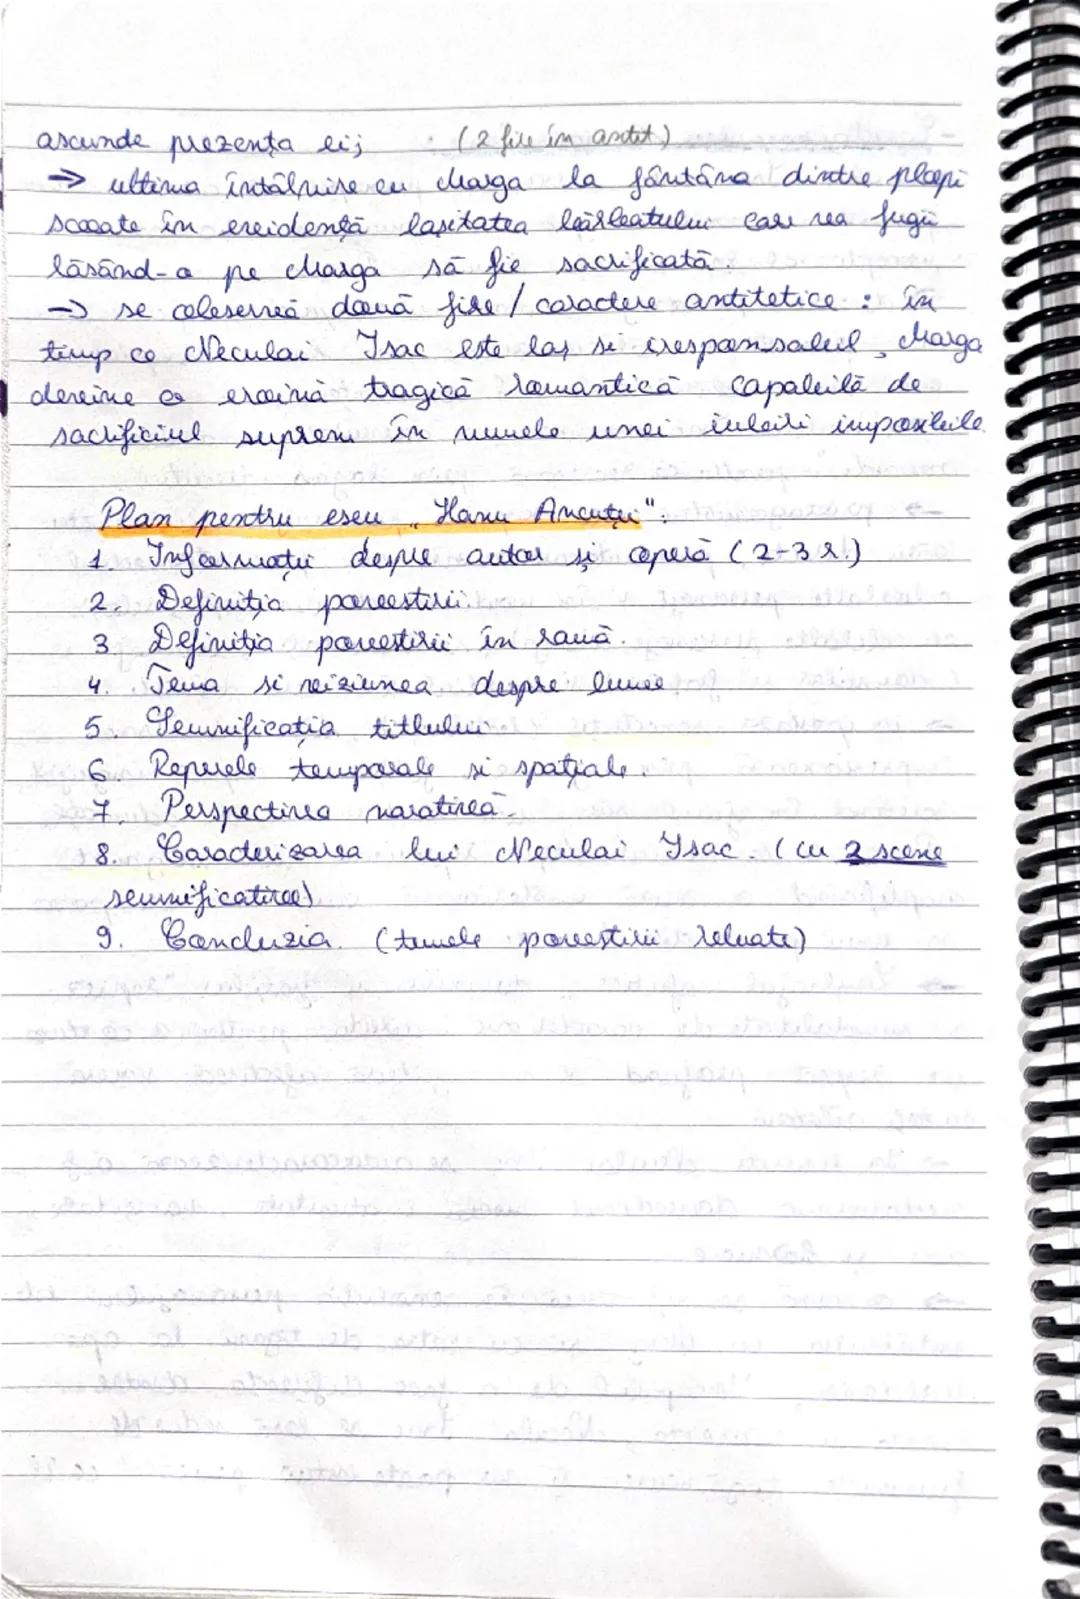 ascunde prezența ei; : (2 file în antet)
→ ultima întâlnire cu Marga la fântâna dintre plopi
scoate în evidență lașitatea bărbatului care va fugi
lăsând-o pe Marga să fie sacrificată.
→ se observă două fire / caractere antitetice : în
timp ce Neculai Isac este laș si iresponsabil, Marga
devine o eroină tragică romantică capabilă de
sacrificiul suprem în numele unei iubiri imposibile
Plan pentru eseu „Hanu Ancuței":
1. Informații despre autor și operă (2-3 r.)
2. Definiția povestirii.
3 Definiția povestirii în ramă.
4. Tema si viziunea despre lume
5. Semnificația titlului
6 Reperele temporale si spațiale.
7. Perspectiva narativă.
8. Caracterizarea lui Neculai Isac. (cu 2 scene
semnificative)
9. Concluzia. (temele povestirii reluate)